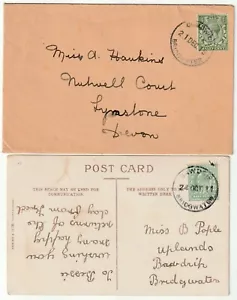 Miss A. Hawkins
Nutwell Court
Lympstone
Devon
POST CARD
THIS SPACE MAY BE USED FOR
COMMUNICATION
THE ADDRESS ONLY TO BE
WRITTEN HERE
To Bessie
wishing you
many happy
returns of the
day from Fred
24 OC 11
BRIDGWATER
Miss B Pople
uplands
Bawdrip
Bridgwater